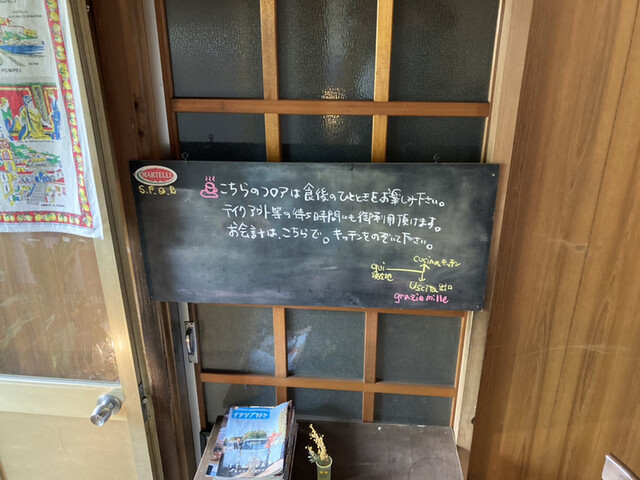 POMPEI
MARTELLI
S.P.Q.B
こちらのフロアは食後のひとときをお楽しみ下さい。
テイクアウト等の待ち時間にも御利用頂けます。
お会計は、こちらで。キッチンをのぞいて下さい。
cucina キッチン
qui
現在地
Uscita 出口
grazie mille
イタリア好き